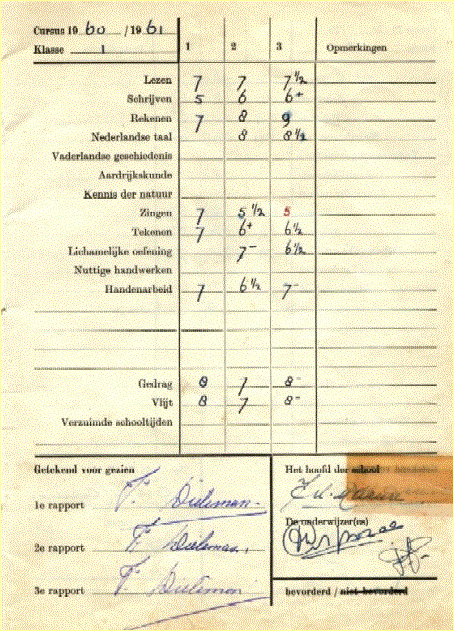 Cursus 1960 / 1961
Klasse 1 1 2 3 Opmerkingen
Lezen 7 7 7½
Schrijven 5 6 6+
Rekenen 7 8 9
Nederlandse taal 8 8½
Vaderlandse geschiedenis
Aardrijkskunde
Kennis der natuur
Zingen 7 5½ 5
Tekenen 7 6+ 6½
Lichamelijke oefening 7- 6½
Nuttige handwerken
Handenarbeid 7 6½ 7-
Gedrag 8 7 8-
Vlijt 8 7 8-
Verzuimde schooltijden
Getekend voor gezien
1e rapport F. Dieleman
2e rapport F. Dieleman
3e rapport F. Dieleman
Het hoofd der school
De onderwijzer(es)
bevorderd / niet bevorderd